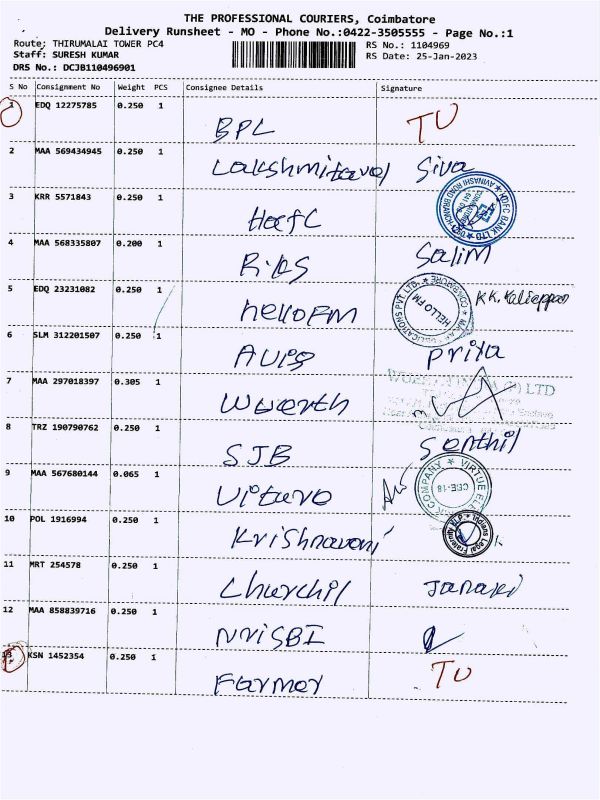 THE PROFESSIONAL COURIERS, Coimbatore
Delivery Runsheet - MO - Phone No.:0422-3505555 - Page No.:1
Route: THIRUMALAI TOWER PC4 RS No.: 1104969
Staff: SURESH KUMAR RS Date: 25-Jan-2023
DRS No.: DCJB110496901
S No Consignment No Weight PCS Consignee Details Signature
1 EDQ 12275785 0.250 1
BPL TU
2 MAA 569434945 0.250 1
Lakshmitavol Siva
3 KRR 5571843 0.250 1
HdfC
HDFC BANK LTD
4 MAA 568335807 0.200 1
Salim
5 EDQ 23231082 0.250 1
helloFM
HELLO FM
COIMBATORE
KK. Kaliappan
6 SLM 312201507 0.250 1
Priya
7 MAA 297018397 0.305 1
Wuerth
CO LTD
8 TRZ 190790762 0.250 1
SJB Senthil
9 MAA 567680144 0.065 1
COMPANY VIRTUE
CEE-18
10 POL 1916994 0.250 1
Krishnaveni
11 MRT 254578 0.250 1
Churchil Janaki
12 MAA 858839716 0.250 1
NriSBI
13 KSN 1452354 0.250 1
Farmer TU